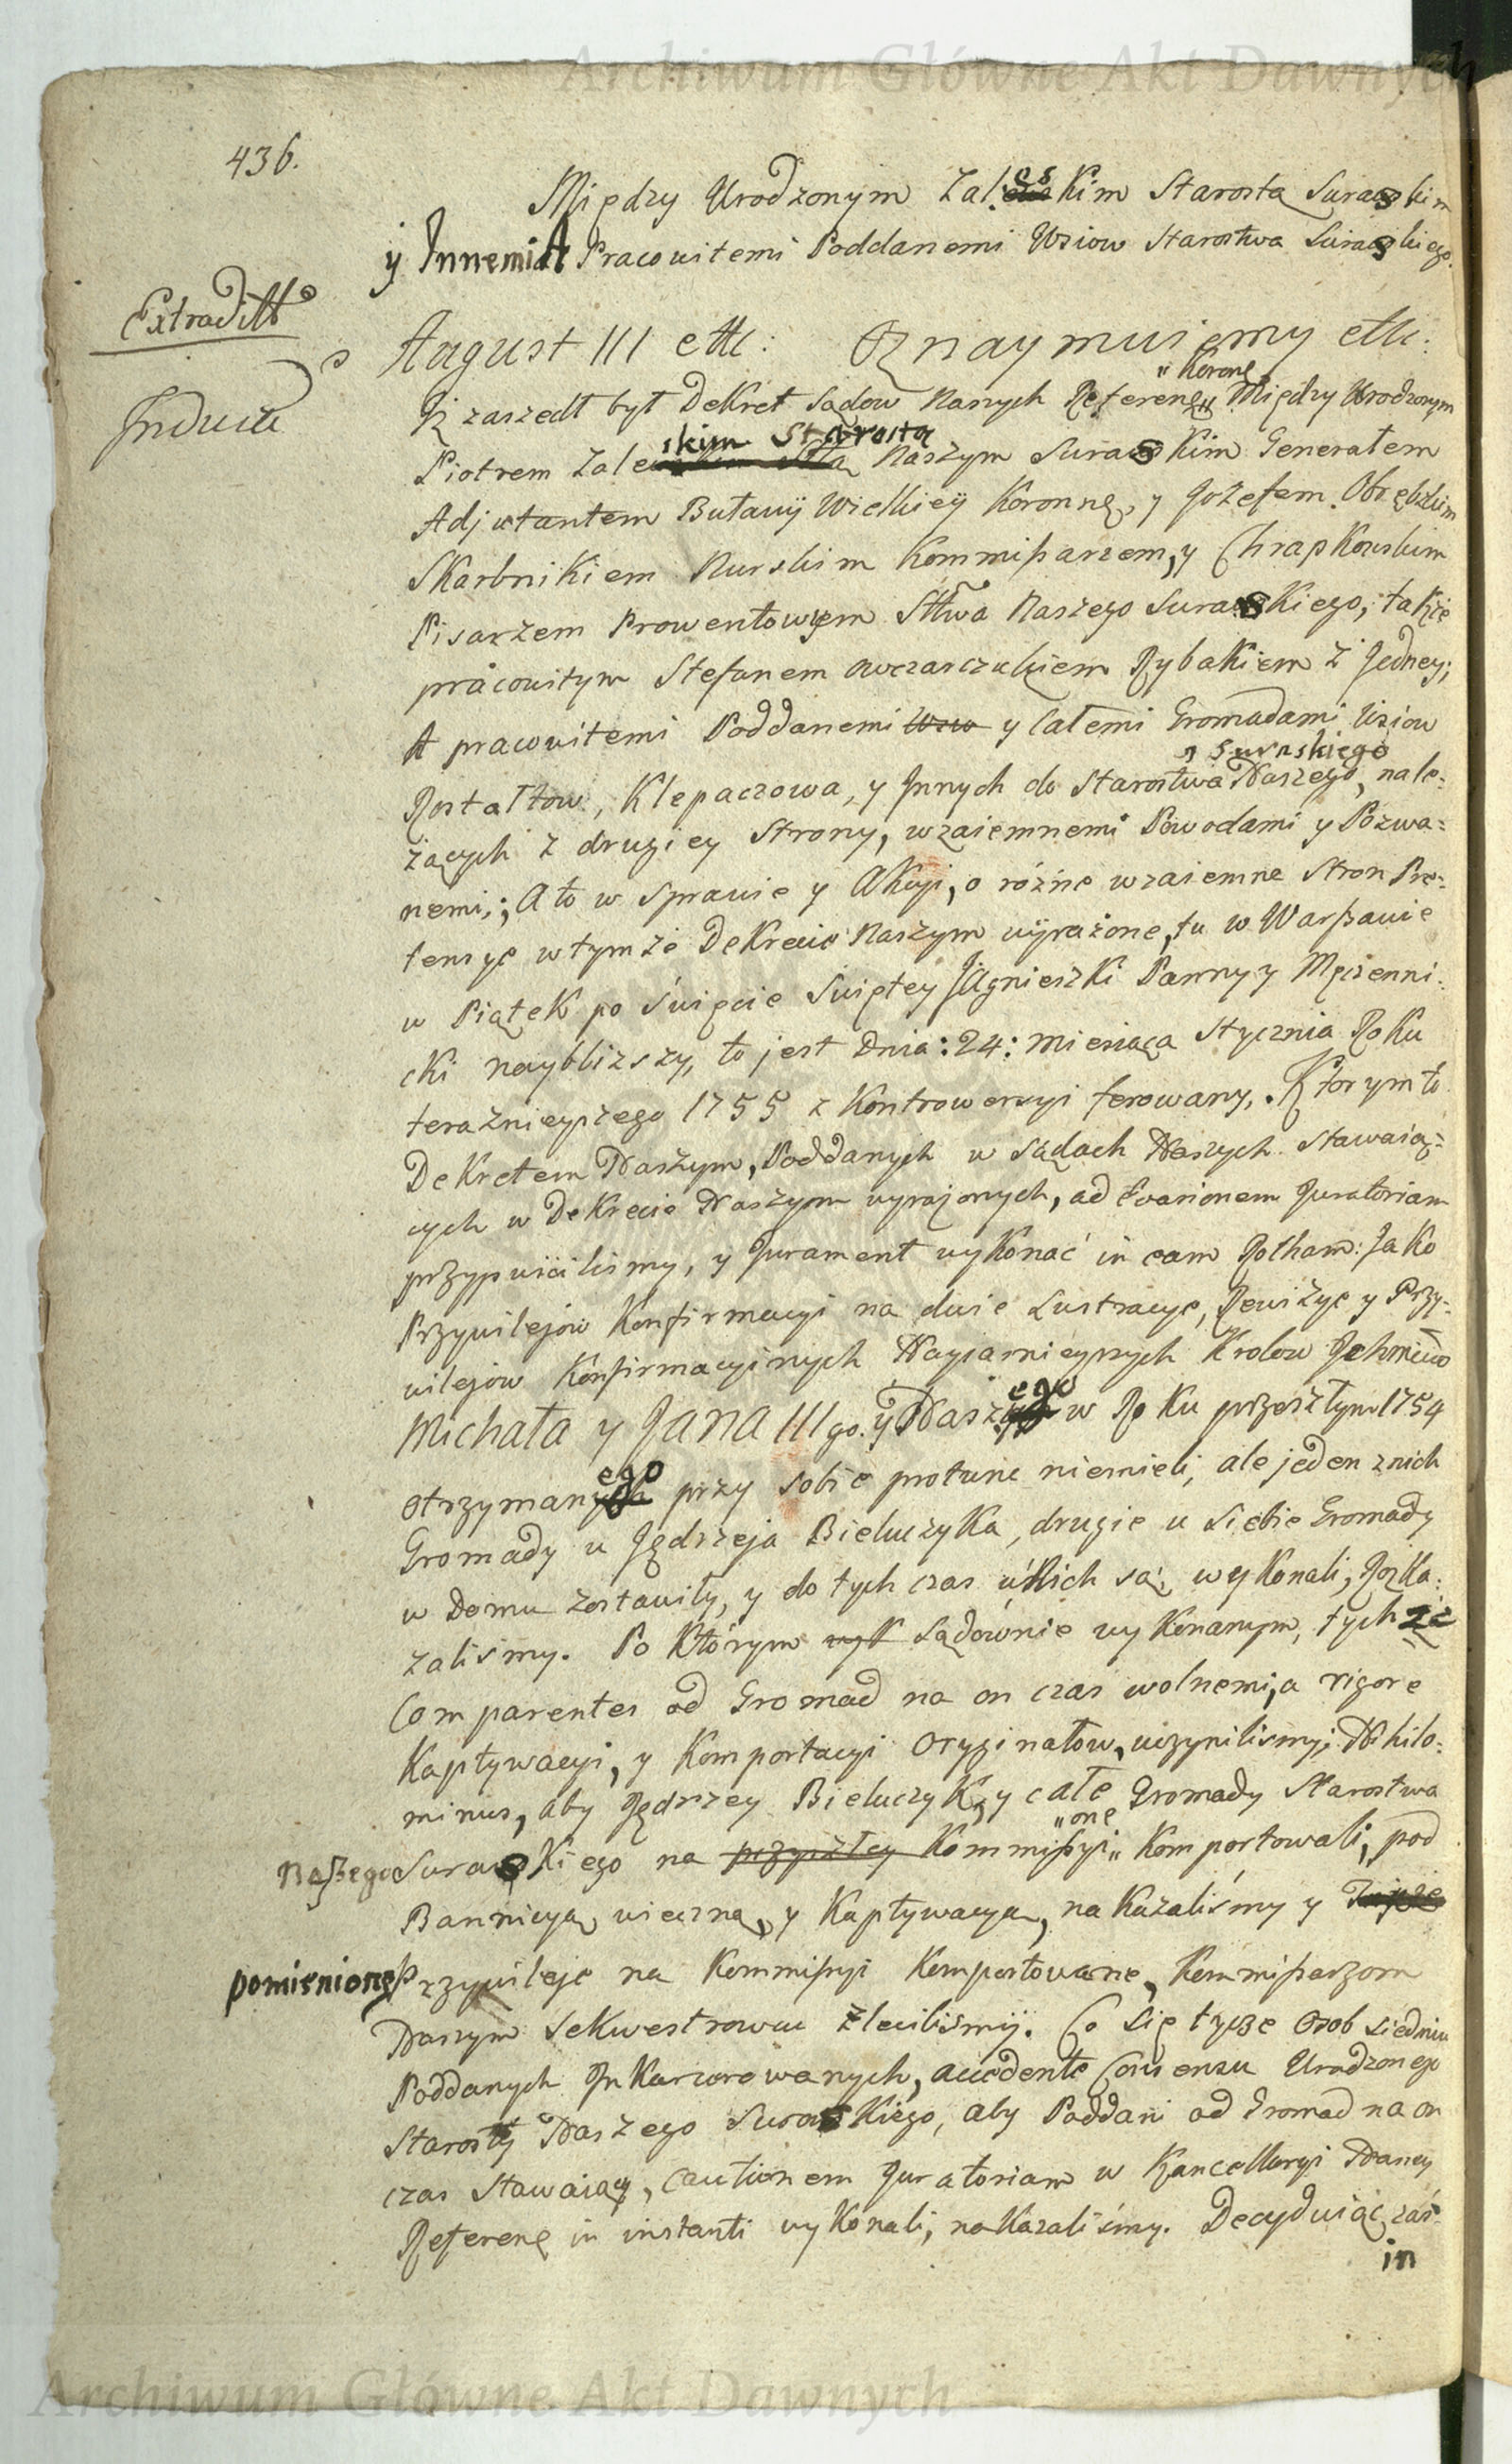 Archiwum Główne Akt Dawnych
436.
Między Urodzonym Zaleskim Starostą Suraskim
y Innemi A Pracowitemi Poddanemi Wsiow Starostwa Suraskiego.
Extradittо
August III ettc: Oznaymuiemy ettc:
Inducta
Iż zaszedł był Dekret Sądow Naszych Referenę "Koronę" Między Urodzonym
Piotrem Zaleskim Starostą Naszym Suraskim Generałem
Adjutantem Buławÿ Wielkiey Koronnę, y Jozefem Obrębskim
Skarbnikiem Nurskim Kommißarzem, y Chrapkowskim
Pisarzem Prowentowym Sttwa Naszego Suraskiego, także
pracowitym Stefanem Owczarczukiem Rybakiem z Jedney;
A pracowitemi Poddanemi Wsiw y Całemi Gromadami Wsiow
Rostałtow, Klepaczowa, y Innych do Starostwa Naszego, Suraskiego nale=
żących z drugiey Strony, wzaiemnemi Powodami y Pozwa=
nemi; A to w Sprawie y Akcyi, o różne wzaiemne Stron Pre=
tensye w tymże Dekrecie Naszym wÿrażone, tu w Warßawie
w Piątek po Święcie Świętey Jagnieszki Panny y Męczenni=
cki naybliższy, to jest Dnia: 24: Miesiąca Stycznia Roku
teraznieyszego 1755 z Kontrowersyi ferowany. Ktorym to
Dekretem Naszym, Poddanych w Sądach Naszych Stawaią=
cych w Dekrecie Naszym wyrażonych, ad Evasionem Juratoriam
przypuściliśmy, y Jurament wykonać in eam Rotham: Jako
Przywilejow Konfirmacyi na dwie Lustracye, Rewizye y Przy=
wilejow Konfirmacyinych Nayiasnieyszych Krolow Jchmciow
Michała y JANA IIIgo. y Naszego w Roku przeszłym 1754
otrzymanego przy sobie protunc niemieli, ale jeden z nich
Gromady u Jędrzeja Bieluczyka, drugie u Siebie Gromady
w Domu zostawiły, y do tych czas u Nich są, wykonali, Rozka=
zaliśmy. Po Którym wyk Sądownie wykonanym, tychże
Comparentes od Gromad na on czas wolnemi, a rigore
Kaptywacyi, y Komportacyi Oryginałow, uczyniliśmy; Nihilo=
minus, aby Jędrzey Bieluczyk, y całe Gromady Starostwa
Naßego Suraskiego na przyszłey Kommißyi "one" Komportowali, pod
Bannicyą wieczną, y Kaptywacyą, nakazaliśmy y
pomienione Przywileje na Kommißyi Komportowane, Kommißarzom
Naszym Sekwestrować zleciliśmÿ. Co się tycze Osob siedmiu
Poddanych Inkarcerowanych, accedente Consensu Urodzonego
Starosty Naszego Suraskiego, aby Poddani od Gromad na on
czas Stawaiący, Cautionem Juratoriam w Kancellaryi Naszey
Referenę in instanti wykonali, nakazaliśmy. Decyduiąc zaś
in
Archiwum Główne Akt Dawnych